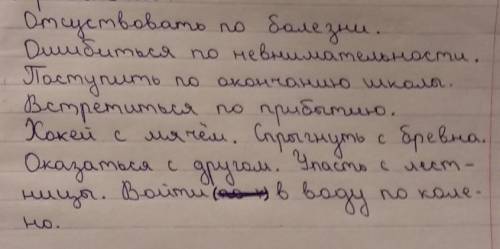 Отсуствовать по болезни.
Ошибиться по невнимательности.
Поступить по окончанию школы.
Встретиться по прибытию.
Хокей с мячём. Спрыгнуть с бревна.
Оказаться с другом. Упасть с лест-
ницы. Войти в воду по коле-
но.